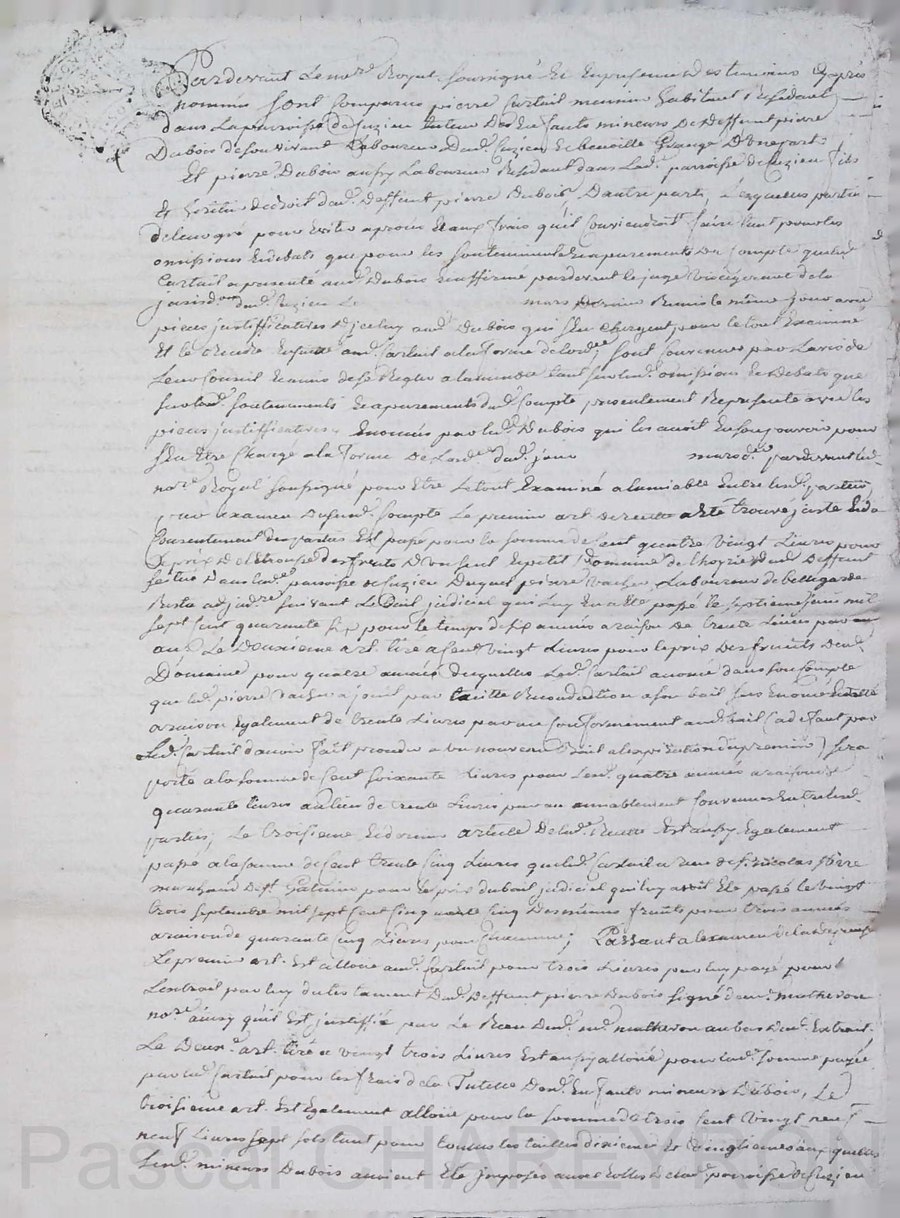 Pardevant Le no.re Royal soussigné Et En presence des temoins Cy après
nommés sont Comparus pierre Cartail meunier habitant Residant
dans La parroisse de Cuzieu tuteur Des Enfants mineurs De deffunt pierre
Dubois de son vivant Laboureur dud. Cuzieu Et benoitte Grange D'Une part
Et pierre Dubois aussy Laboureur Residant dans Lad. parroisse de Cuzieu fils
Et heritier de droit dud. deffunt pierre Dubois, D'autre part, Lesquelles parties
de leur gré pour Eviter a procés Et aux frais qu'il Conviendroit faire tant pour les
omissions Et debats que pour les soutennements Et apurements Du Compte que led.
Cartail a presenté aud. Dubois Et affirmé pardevant le juge
jurisd.on dud. Cuzieu Le mars dernier Remis le même jour avec
pieces justifficatives D'iceluy aud. Dubois qui s'En Chargent pour le tout Examiner
Et le Rendre Ensuitte aud. Cartail a la forme de l'ord.ce, sont Convenues par L'avis de
Leur Conseil Et amis de se Regler a l'amiable tant sur les d. omissions Et Debats que
sur les d. soutennements Et apurements dud. Compte presentement Representé avec les
pieces justifficatives, par led. Dubois qui les avoit En son pouvoir pour
s'En Etre Chargé a la forme De Lord.ce dud. jour mars d. pardevant led.
no.re Royal soussigné pour Etre Le tout Examiné a l'amiable Entre lesd. parties
par Examen Dusud. Compte Le premier art. de recette a Eté trouvé juste Et du
Consentement des parties Est passé pour la somme de Cent quatre vingt Livres pour
Le prix De des fruits D'Un petit Domaine de l'hoyrie dud. Deffunt
situé Dans lad. parroisse de Cuzieu Duquel pierre Vacher Laboureur de bellegarde
Resta adjud.re suivant Le Bail judiciel qui Luy En a Eté passé le septieme juin mil
sept Cent quarante six pour le temps de six années a raison de trente Livres par
an, Le Deuxieme art. tiré a Cent vingt Livres pour le prix Des fruits Dud.
Domaine pour quatre années desquelles Led. Cartail a dans son Compte
que led. pierre Vacher a joui par taçitte Reconduction a son bail
a raison Egalement de trente Livres par an Conformement aud. bail (a deffaut par
Led. Cartail d'avoir fait proceder a un nouveau bail a l'expiration du premier) sera
porté a la somme de Cent soixante Livres pour lesd. quatre années a raison de
quarante Livres au lieu de trente Livres par an amiablement Convenues Entre lesd.
parties; Le troisieme Et dernier article De lad. Recette Est aussy Egalement
passé a la somme de Cent trente Cinq Livres que led. Cartail a reçu de s.r Nicolas
marchand de s.t Galmier pour Le prix du bail judiciel qui luy avoit Eté passé le vingt
trois septembre mil sept Cent Cinq uante Cinq Des mêmes fruits pour trois années
a raison de quarante Cinq Livres pour Chacune; Passant a l'examen de la depense
Le premier art. Est alloué aud. Cartail pour trois Livres par luy payé pour
L'extrait par luy du testament Dud. Deffunt pierre Dubois signé de m.e matheron
no.re ainsy qu'il Est justiffié par Le Reçu Dud. m.e matheron au bas Dud. Extrait.
Le Deux.e art. tiré a vingt trois Livres Est aussy alloué pour lad. somme payée
par led. Cartail pour les frais de la Tutelle Desd. Enfants mineurs Dubois, Le
troisieme art. Est Egalement alloué pour la somme de trois Cent vingt neuf
neuf Livres sept sols tant pour toutes les tailles dixiemes Et vingtiemes aux quelles
Lesd. mineurs Dubois avoient Eté Imposés aux Rolles de lad. parroisse de Cuzieu
Pascal CHAREYRON